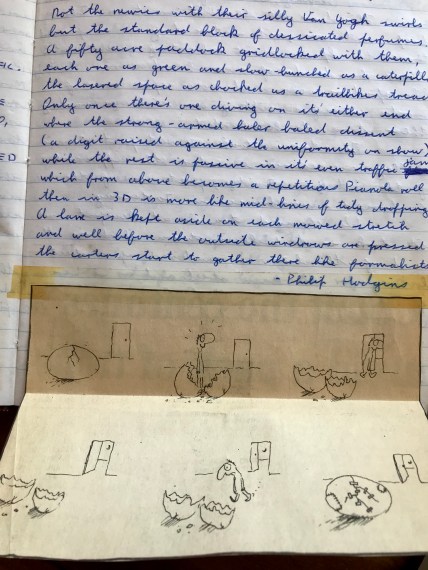 Not the newies with their silly Van Gogh swirls
but the standard block of dessicated perfumes.
A fifty acre paddock gridlocked with them,
each one as green and slow-bunched as a caterpill
the lasered space as chocked as a trailbikes tread
Only once there's one diving on its either end
where the strong-armed baler baled dissent
(a digit raised against the uniformity on show)
while the rest is passive in it's even traffic jam
which from above becomes a repetitive Pianola roll
then in 3D is more like mid-  of tidy dropping
A lane is kept aside on each mowed stretch
and well before the outside windrows are pressed
the carters start to gather there like formalists
- Philip Hodgins
FIC.
E
D,
ED